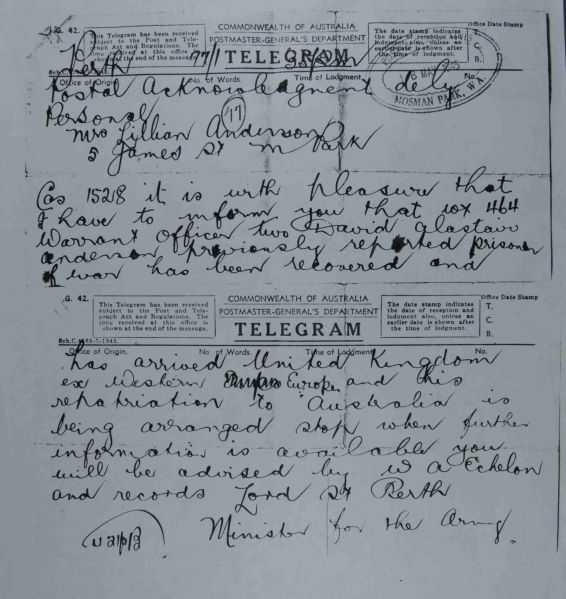 .G. 42.
This Telegram has been received subject to the Post and Telegraph Act and Regulations. The time received at this office is shown at the end of the message.
COMMONWEALTH OF AUSTRALIA
POSTMASTER-GENERAL'S DEPARTMENT
TELEGRAM
The date stamp indicates the date of reception and lodgment also, unless an earlier date is shown after the time of lodgment.
Office Date Stamp
T.
C.
B.
MOSMAN PARK, W.A.
Sch.C.
Office of Origin. No. of Words. Time of Lodgment. No.
Perth 77/1
Postal Acknowledgment dely
Personal
17
Mrs Lillian Anderson
5 James St M Park
Cas 1528 it is with pleasure that
I have to inform you that wx 464
Warrant Officer two David Alastair
Anderson previously reported prisoner
of war has been recovered and
.G. 42.
This Telegram has been received subject to the Post and Telegraph Act and Regulations. The time received at this office is shown at the end of the message.
COMMONWEALTH OF AUSTRALIA
POSTMASTER-GENERAL'S DEPARTMENT
TELEGRAM
The date stamp indicates the date of reception and lodgment also, unless an earlier date is shown after the time of lodgment.
Office Date Stamp
T.
C.
B.
Office of Origin. No. of Words. Time of Lodgment. No.
has arrived United Kingdom
ex Western Europe and his
repatriation to Australia is
being arranged stop when further
information is available you
will be advised by W A Echelon
and records Lord St Perth
Minister for the Army.